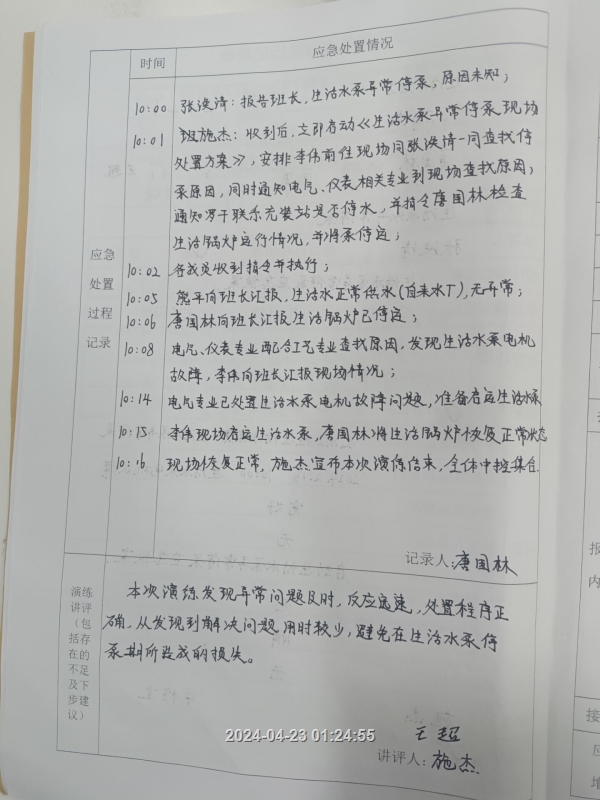 时间 应急处置情况
10:00 张洪涛:报告班长,生活水泵异常停泵,原因未知;
10:01 班施杰:收到后,立即启动《生活水泵异常停泵现场
处置方案》,安排李伟前往现场同张洪涛一同查找停
泵原因,同时通知电气、仪表相关专业到现场查找原因;
通知 联系充装站是否停水,并指令唐国林检查
生活锅炉运行情况,并将泵停运;
10:02 各成员收到指令并执行;
10:05 熊平向班长汇报,生活水正常供水(自来水厂),无异常;
10:06 唐国林向班长汇报生活锅炉已停运;
10:08 电气、仪表专业配合工艺专业查找原因,发现生活水泵电机
故障,李伟向班长汇报现场情况;
10:14 电气专业已处置生活水泵电机故障问题,准备启运生活水泵
10:15 李伟现场启运生活水泵,唐国林将生活锅炉恢复正常状态
10:16 现场恢复正常,施杰宣布本次演练结束,全体中控集合
应急
处置
过程
记录
记录人:唐国林
演练
讲评
(包
括存
在的
不足
及下
步建
议)
本次演练发现异常问题及时,反应迅速,处置程序正
确,从发现到解决问题用时较少,避免在生活水泵停
泵期所造成的损失。
王超
讲评人:施杰
2024-04-23 01:24:55
报
内
接
应
增